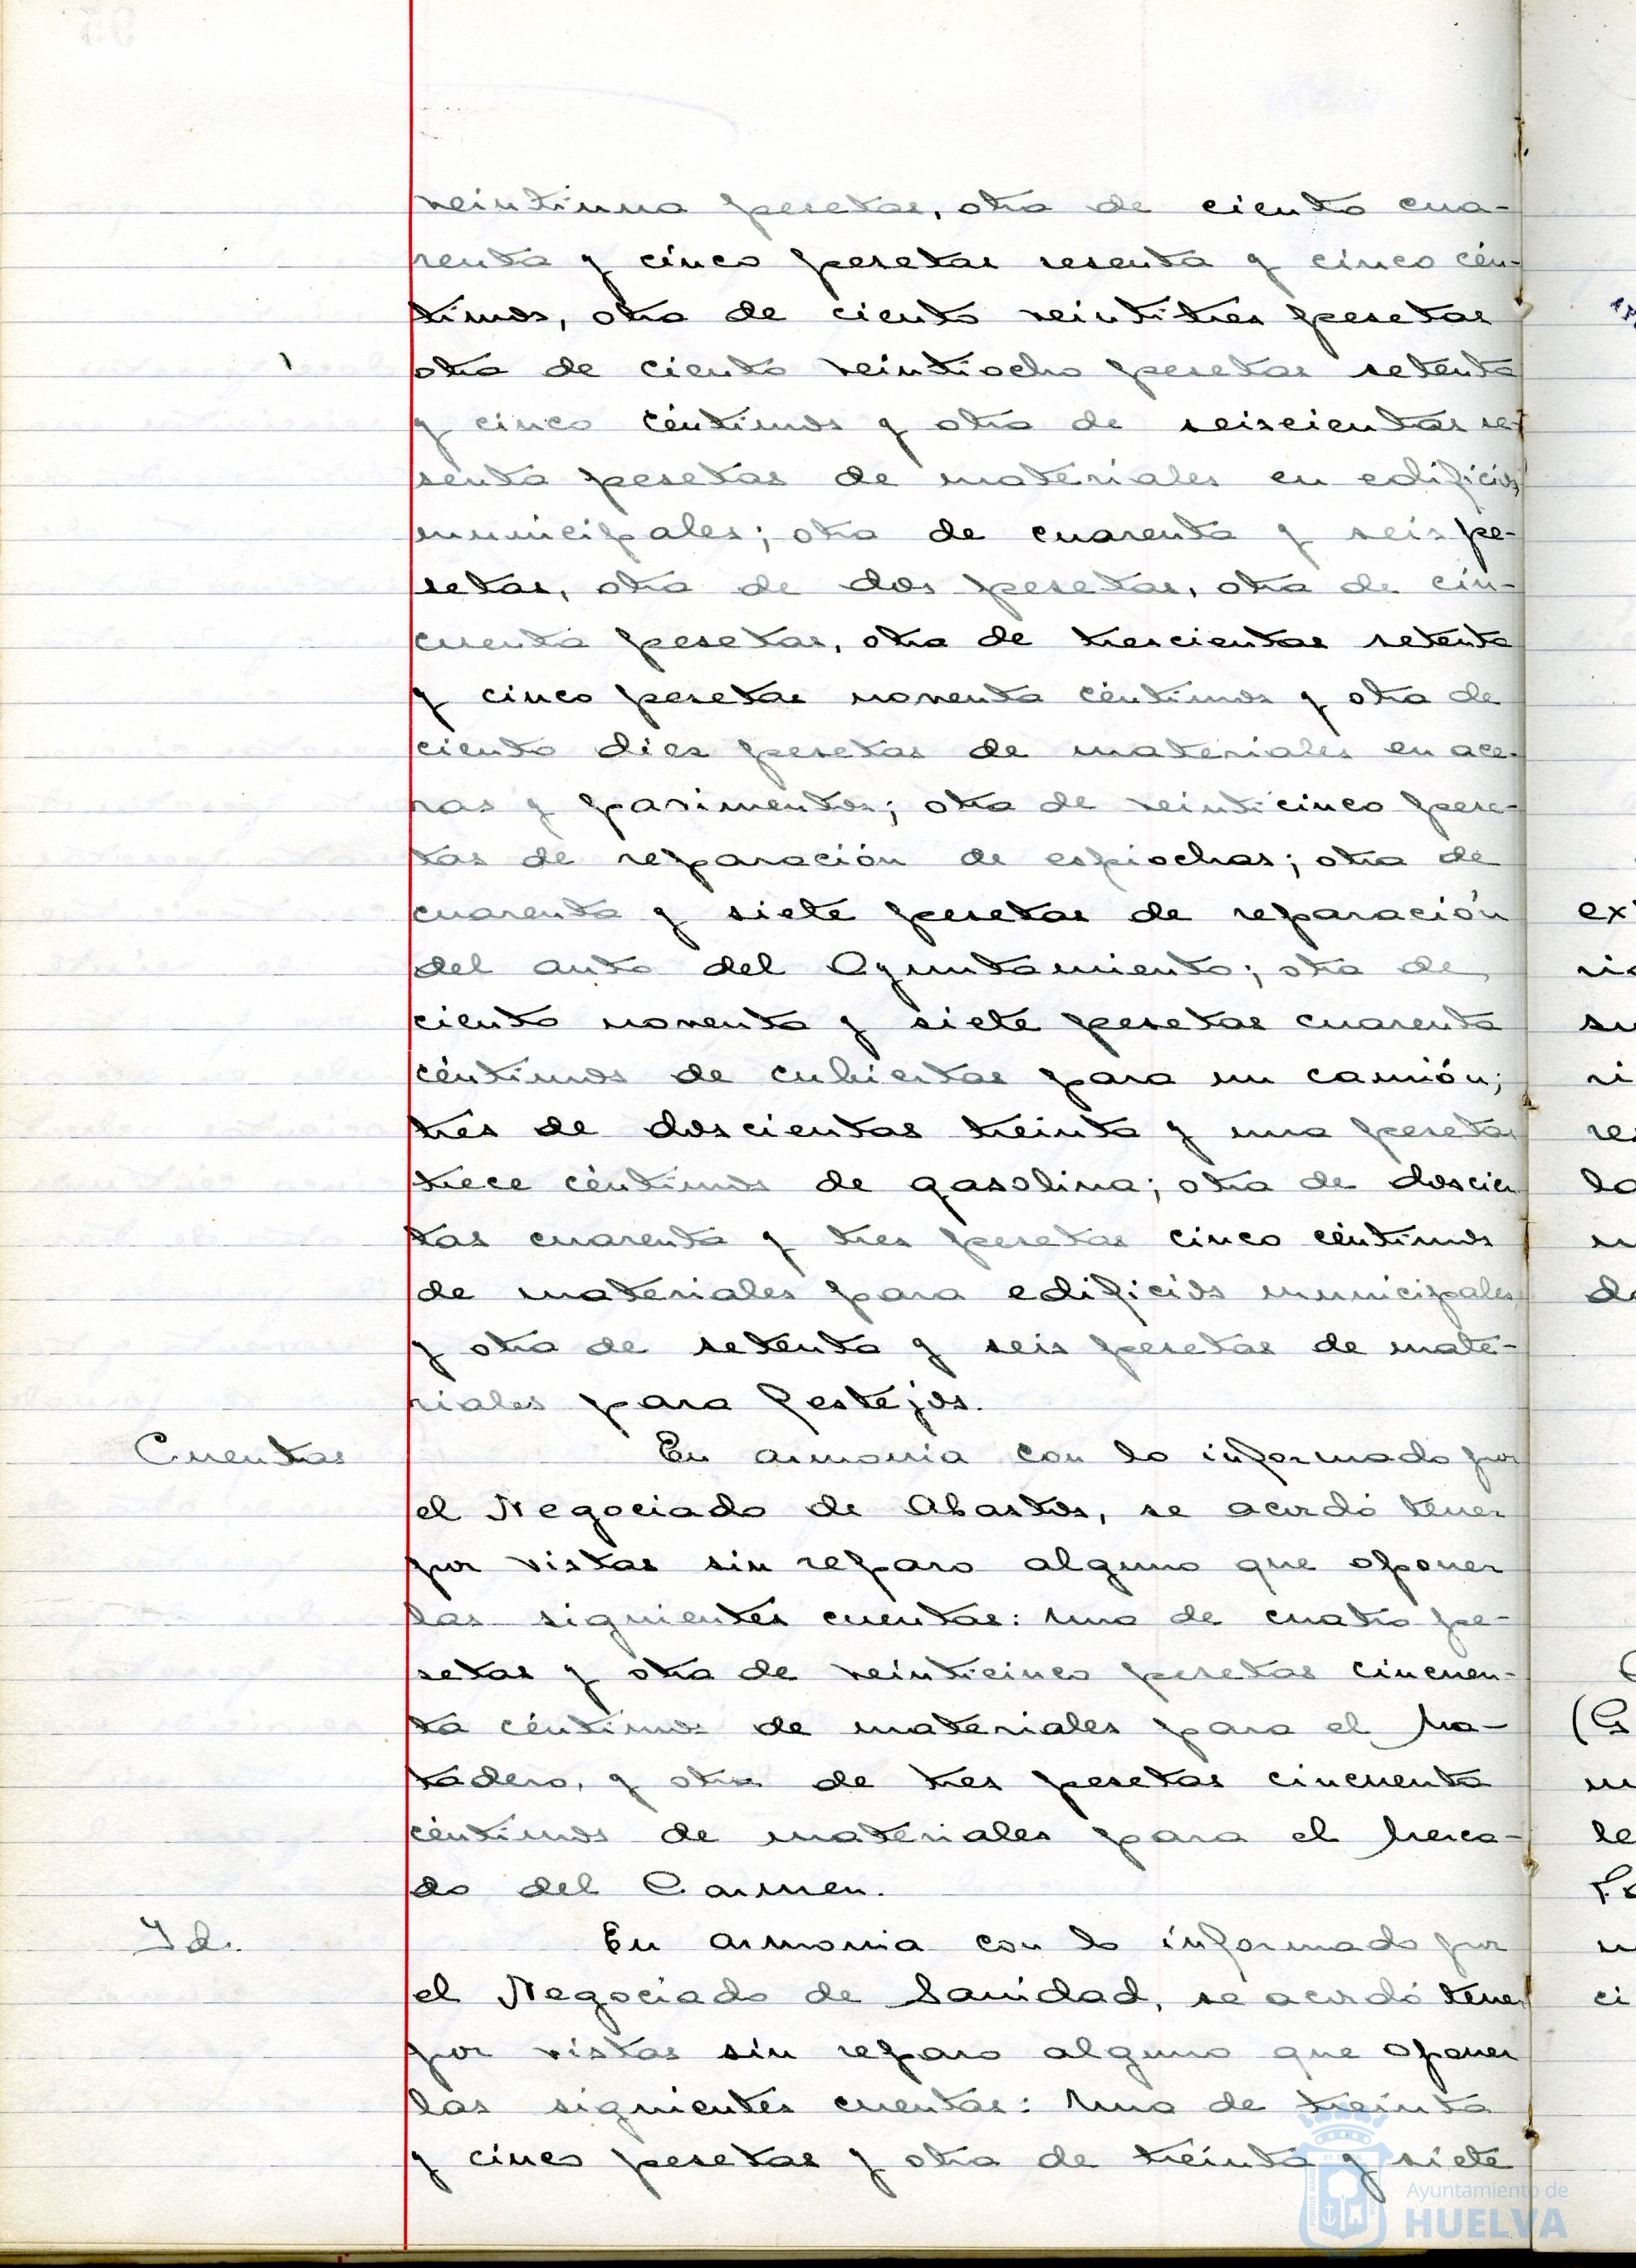 veintiuna pesetas, otra de ciento cua-
renta y cinco pesetas sesenta y cinco cén-
timos, otra de ciento veintitres pesetas
otra de ciento veintiocho pesetas setenta
y cinco céntimos y otra de seiscientas se-
senta pesetas de materiales en edificios
municipales; otra de cuarenta y seis pe-
setas, otra de dos pesetas, otra de cin-
cuenta pesetas, otra de trescientas setenta
y cinco pesetas noventa céntimos y otra de
ciento diez pesetas de materiales en ace-
ras y pavimentos; otra de veinticinco pese-
tas de reparación de espiochas; otra de
cuarenta y siete pesetas de reparación
del auto del Ayuntamiento; otra de
ciento noventa y siete pesetas cuarenta
céntimos de cubiertas para un camión;
tres de doscientas treinta y una pesetas
trece céntimos de gasolina; otra de doscien
tas cuarenta y tres pesetas cinco céntimos
de materiales para edificios municipales
y otra de setenta y seis pesetas de mate-
riales para festejos.
Cuentas En armonia con lo informado por
el Negociado de Abastos, se acordó tener
por vistas sin reparo alguno que oponer
las siguientes cuentas: Una de cuatro pe-
setas y otra de veinticinco pesetas cincuen-
ta céntimos de materiales para el Ma-
tadero, y otra de tres pesetas cincuenta
céntimos de materiales para el Merca-
do del Carmen.
Id. En armonia con lo informado por
el Negociado de Sanidad, se acordó tener
por vistas sin reparo alguno que oponer
las siguientes cuentas: Una de treinta
y cinco pesetas y otra de treinta y siete
Ayuntamiento de
HUELVA